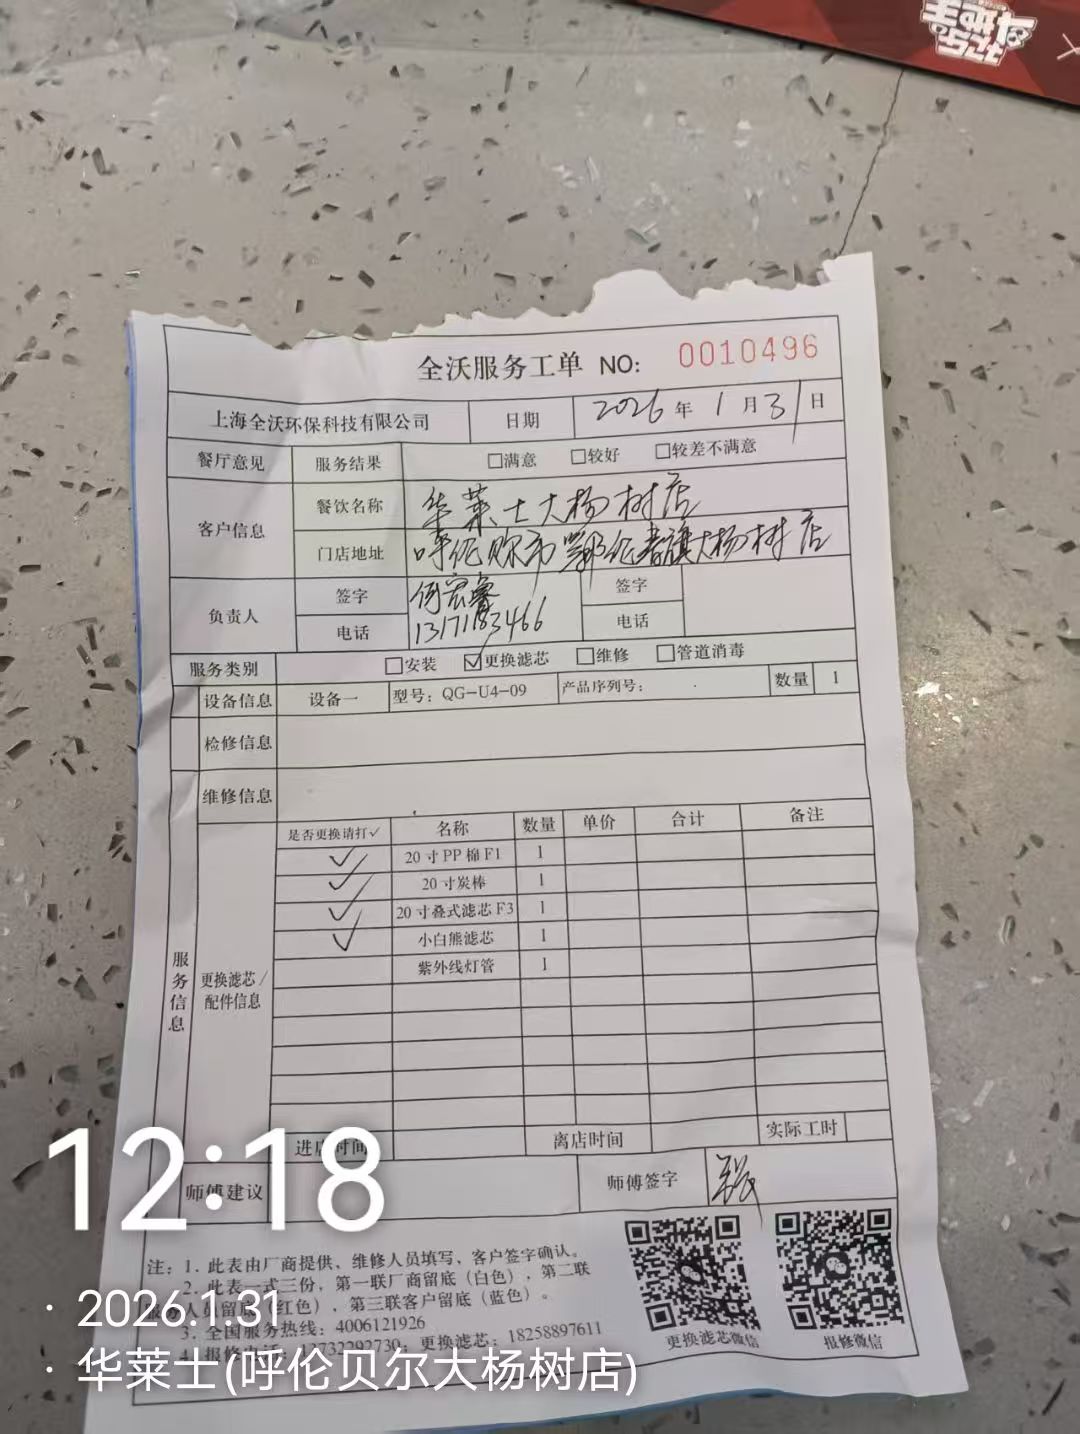 全沃服务工单 NO: 0010496
上海全沃环保科技有限公司 日期 2026年1月31日
餐厅意见 服务结果 □满意 □较好 □较差不满意
客户信息 餐饮名称 华莱士大杨树店
门店地址 呼伦贝尔市鄂伦春旗大杨树店
负责人 签字 何宏睿 签字
电话 13171183466 电话
服务类别 □安装 ☑更换滤芯 □维修 □管道消毒
设备信息 设备一 型号：QG-U4-09 产品序列号： 数量 1
检修信息
维修信息
服务信息
更换滤芯/配件信息
是否更换请打✓ 名称 数量 单价 合计 备注
✓ 20寸PP棉F1 1
✓ 20寸炭棒 1
✓ 20寸叠式滤芯F3 1
✓ 小白熊滤芯 1
紫外线灯管 1
进店时间 离店时间 实际工时
师傅建议 师傅签字
注：1. 此表由厂商提供、维修人员填写、客户签字确认。
2. 此表一式三份，第一联厂商留底（白色），第二联
服务人员留底（红色），第三联客户留底（蓝色）。
3. 全国服务热线：4006121926
4. 报修电话：13732292730；更换滤芯：18258897611
更换滤芯微信 报修微信
12:18
· 2026.1.31
· 华莱士(呼伦贝尔大杨树店)